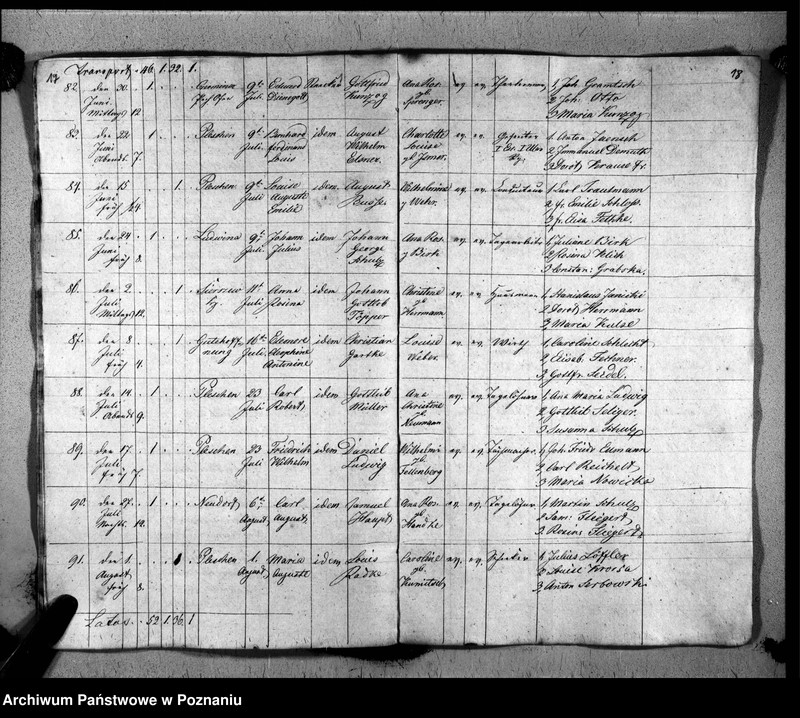 17 Transport . 46. 1. 32. 1. 18.
82. den 20. Juni Mittags 12. 1 9t Juli Eduard Gottfried Kunzog Ana Ros. gb. Sprenger. ev ev. 1, Joh Gramtsch
2, Joh. Otto
3, Maria Kunzog
83. den 22 Juni Abends 7. 1 Pleschen 9t Juli Bernhard Ferdinand Louis idem August Wilhelm Elsner. Charlotte Louise ev. ev. Gefreiter 1, Anton Jaensch
2, Immanuel Demuth
3, Dorot. Krause
84. den 15 Juni früh 1. Pleschen 9t Juli Louise Auguste Emilie idem August Busse Wilhelmine g Wehr. ev. ev. 1, Carl Trautmann
2, fr. Emilie Schloss.
3, fr. Elisa Fethke.
85. den 24. Juni früh 8. 1 Ludwina 9t Juli Johann Julius idem Johann George Schulz Ana Ros. g Birk ev. ev. Tagearbeiter 1, Juliane Birk
2, Rosina Klich
3, Constan: Grabska.
86. den 2. Juli Mittags 12. 1 11t Juli Anna Rosina idem Johann Gottlob Töpper Christine gb Herrmann ev. ev. Hausmann 1, Stanislaus Janicki
2, Dorot Herrmann
3, Maria Kulse
87. den 8 Juli früh 4. 1 16t Juli Eleonore Antonine idem Christian Jaethe Louise Weber. ev. ev. Wirth 1, Caroline Schlecht
2, Elisab. Fechner.
3, Gottfr. Seidel.
88. den 14. Juli Abends 9. 1 Pleschen 23 Juli Carl Robert idem Gottlieb Müller Ana Christine gb. Neumann ev. ev. Tagelöhner 1, Ana Maria Ludwig
2, Gottlieb Seliger.
3, Susanna Schulz
89. den 17. Juli früh 7. 1 Pleschen 23 Juli Friedrich Wilhelm idem Daniel Ludwig Wilhelmi gb. Tellenberg ev. ev. 1, Joh. Friedr Eumann
2, Carl Reichelt
3, Maria Nowicka
90. den 27. Juli Nachts. 12. 1 Neudorf 6t August Carl August idem Samuel Haupt Ana Ros. gb Handke ev. ev. Tagelöhner 1, Martin Schulz
2, Sam: Stiegert
3, Rosina Stiegert
91. den 1. August früh 8. Pleschen 1. August Maria Auguste idem Louis Radke Caroline gb. ev. ev. 1, Julius Löffler
3, Anton Serbowski
Latus . 52. 1. 36. 1
Archiwum Państwowe w Poznaniu